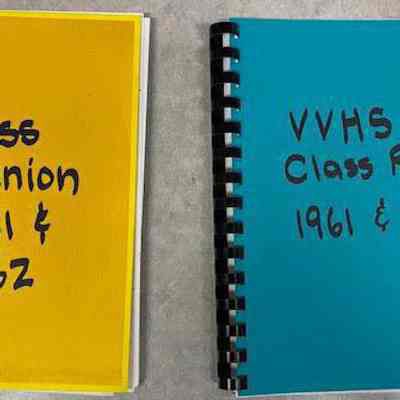 ss
nion
1 &
62
VVHS
Class R
1961 &